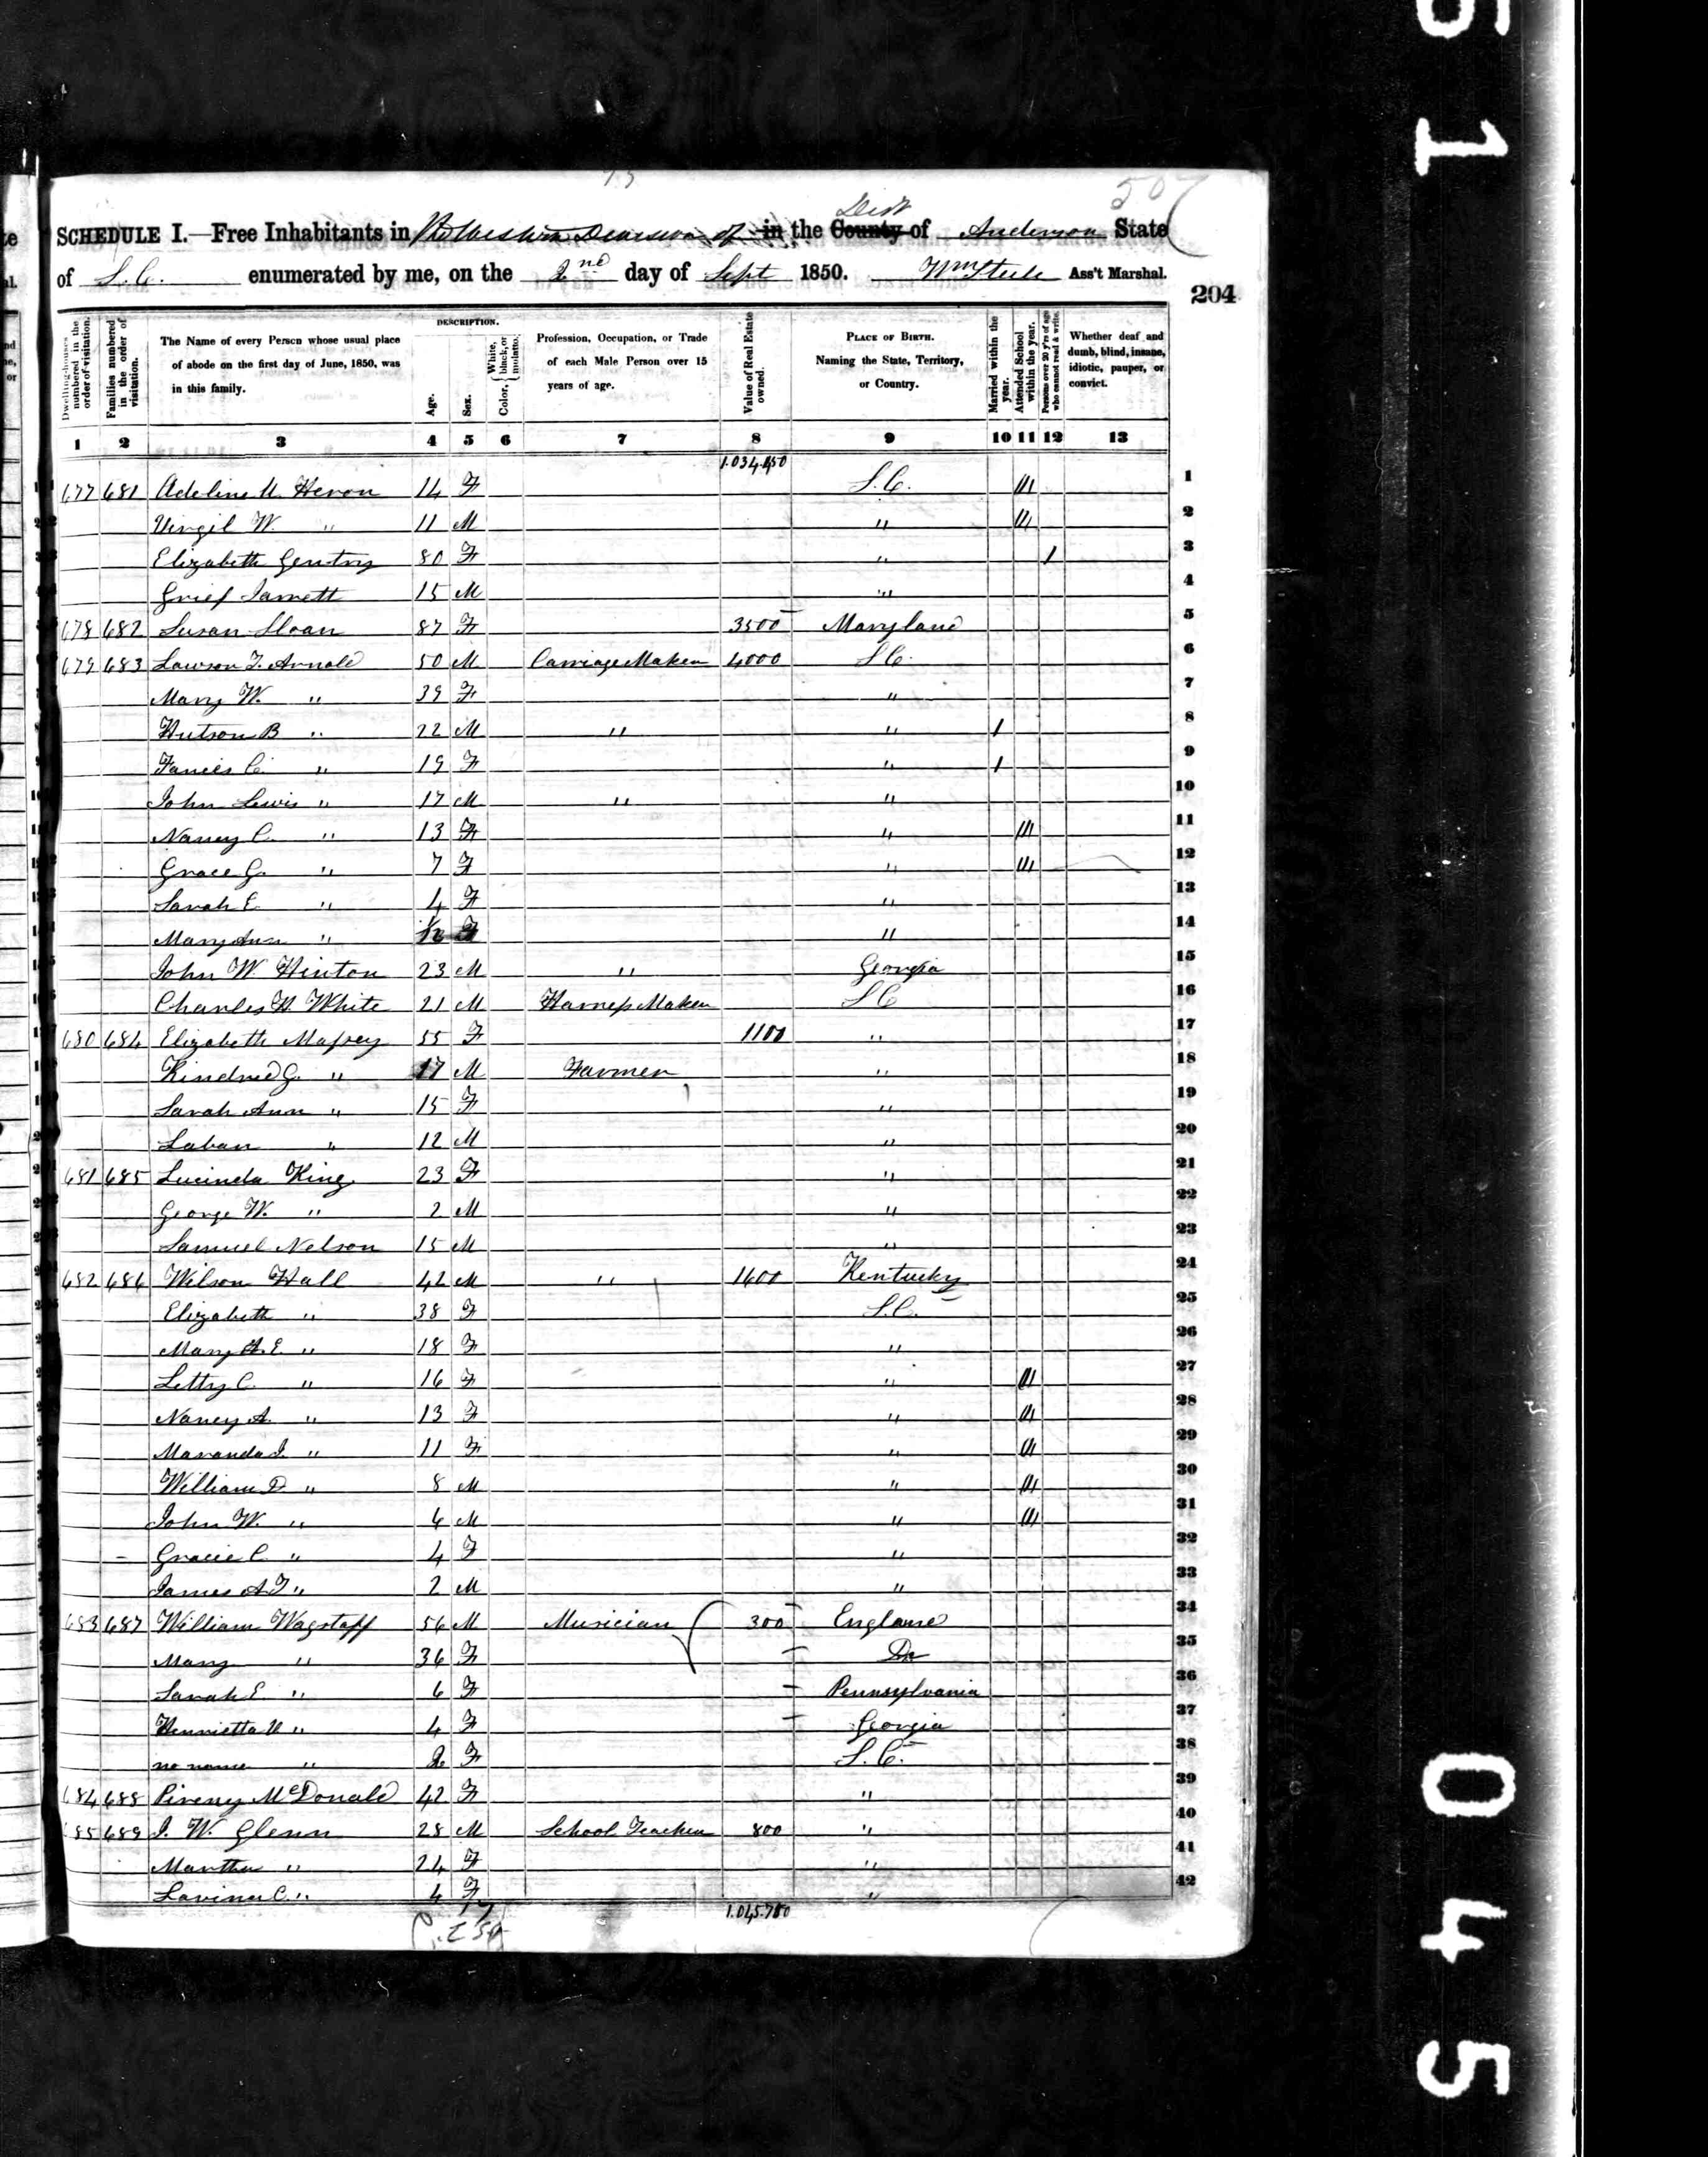 507
SCHEDULE I.—Free Inhabitants in Division of in the County Dist of Anderson State
of S.C. enumerated by me, on the 2nd day of Sept 1850. Wm Steele Ass't Marshal.
204
Dwelling-houses numbered in the order of visitation.
Families numbered in the order of visitation.
The Name of every Person whose usual place of abode on the first day of June, 1850, was in this family.
DESCRIPTION.
Age.
Sex.
Color, White, black, or mulatto.
Profession, Occupation, or Trade of each Male Person over 15 years of age.
Value of Real Estate owned.
PLACE OF BIRTH. Naming the State, Territory, or Country.
Married within the year.
Attended School within the year.
Persons over 20 y'rs of age who cannot read & write.
Whether deaf and dumb, blind, insane, idiotic, pauper, or convict.
1 2 3 4 5 6 7 8 9 10 11 12 13
1.034.450
677 681 Adeline M. Heron 14 F S.C. /// 1
Virgil W. " 11 M " /// 2
Elizabeth Gentry 80 F " / 3
Grief Jarrett 15 M " 4
678 682 Susan Sloan 87 F 3500 Maryland 5
679 683 Lawson T. Arnold 50 M Carriage Maker 4000 S.C. 6
Mary W. " 39 F " 7
Hutson B " 22 M " " / 8
Fances C. " 19 F " / 9
John Lewis " 17 M " " 10
Nancy C. " 13 F " /// 11
Grace G. " 7 F " /// 12
Sarah E. " 4 F " 13
Mary Ann " F " 14
John W. Hinton 23 M " Georgia 15
Charles W. White 21 M Harness Maker S C 16
680 684 Elizabeth Massey 55 F 1100 " 17
Kindred G. " 17 M Farmer " 18
Sarah Ann " 15 F " 19
Laban " 12 M " 20
681 685 Lucinda King 23 F " 21
George W. " 2 M " 22
Samuel Nelson 15 M " 23
682 686 Wilson Hall 42 M " 1600 Kentucky 24
Elizabeth " 38 F S.C. 25
Mary A. E. " 18 F " 26
Letty C. " 16 F " /// 27
Nancy A. " 13 F " /// 28
Maranda J. " 11 F " /// 29
William D. " 8 M " /// 30
John W. " 6 M " /// 31
Gracie C. " 4 F " 32
James A T " 2 M " 33
683 687 William Wagstaff 56 M Musician 300 England 34
Mary " 36 F Do 35
Sarah E. " 6 F Pennsylvania 36
Henrietta V " 4 F Georgia 37
no name " 2 F S.C. 38
684 688 Pireny McDonald 42 F " 39
685 689 J. W. Glenn 28 M School Teacher 800 " 40
Martha " 24 F " 41
Lavina C. " 4 F " 42
1.045.750
0 4 5